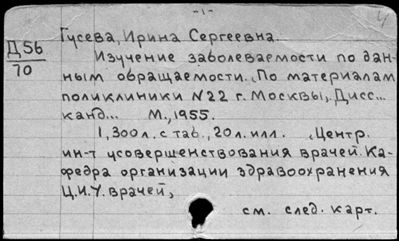 -1-
Гусева, Ирина Сергеевна.
Д56
70
Изучение заболеваемости по дан-
ным обращаемости. (По материалам
поликлиники N22 г. Москвы). Дисс...
канд... М., 1955.
1,300л. с таб., 20л. илл. (Центр.
ин-т усовершенствования врачей. Ка-
федра организации здравоохранения
Ц.И.У. врачей)
см. след. карт.